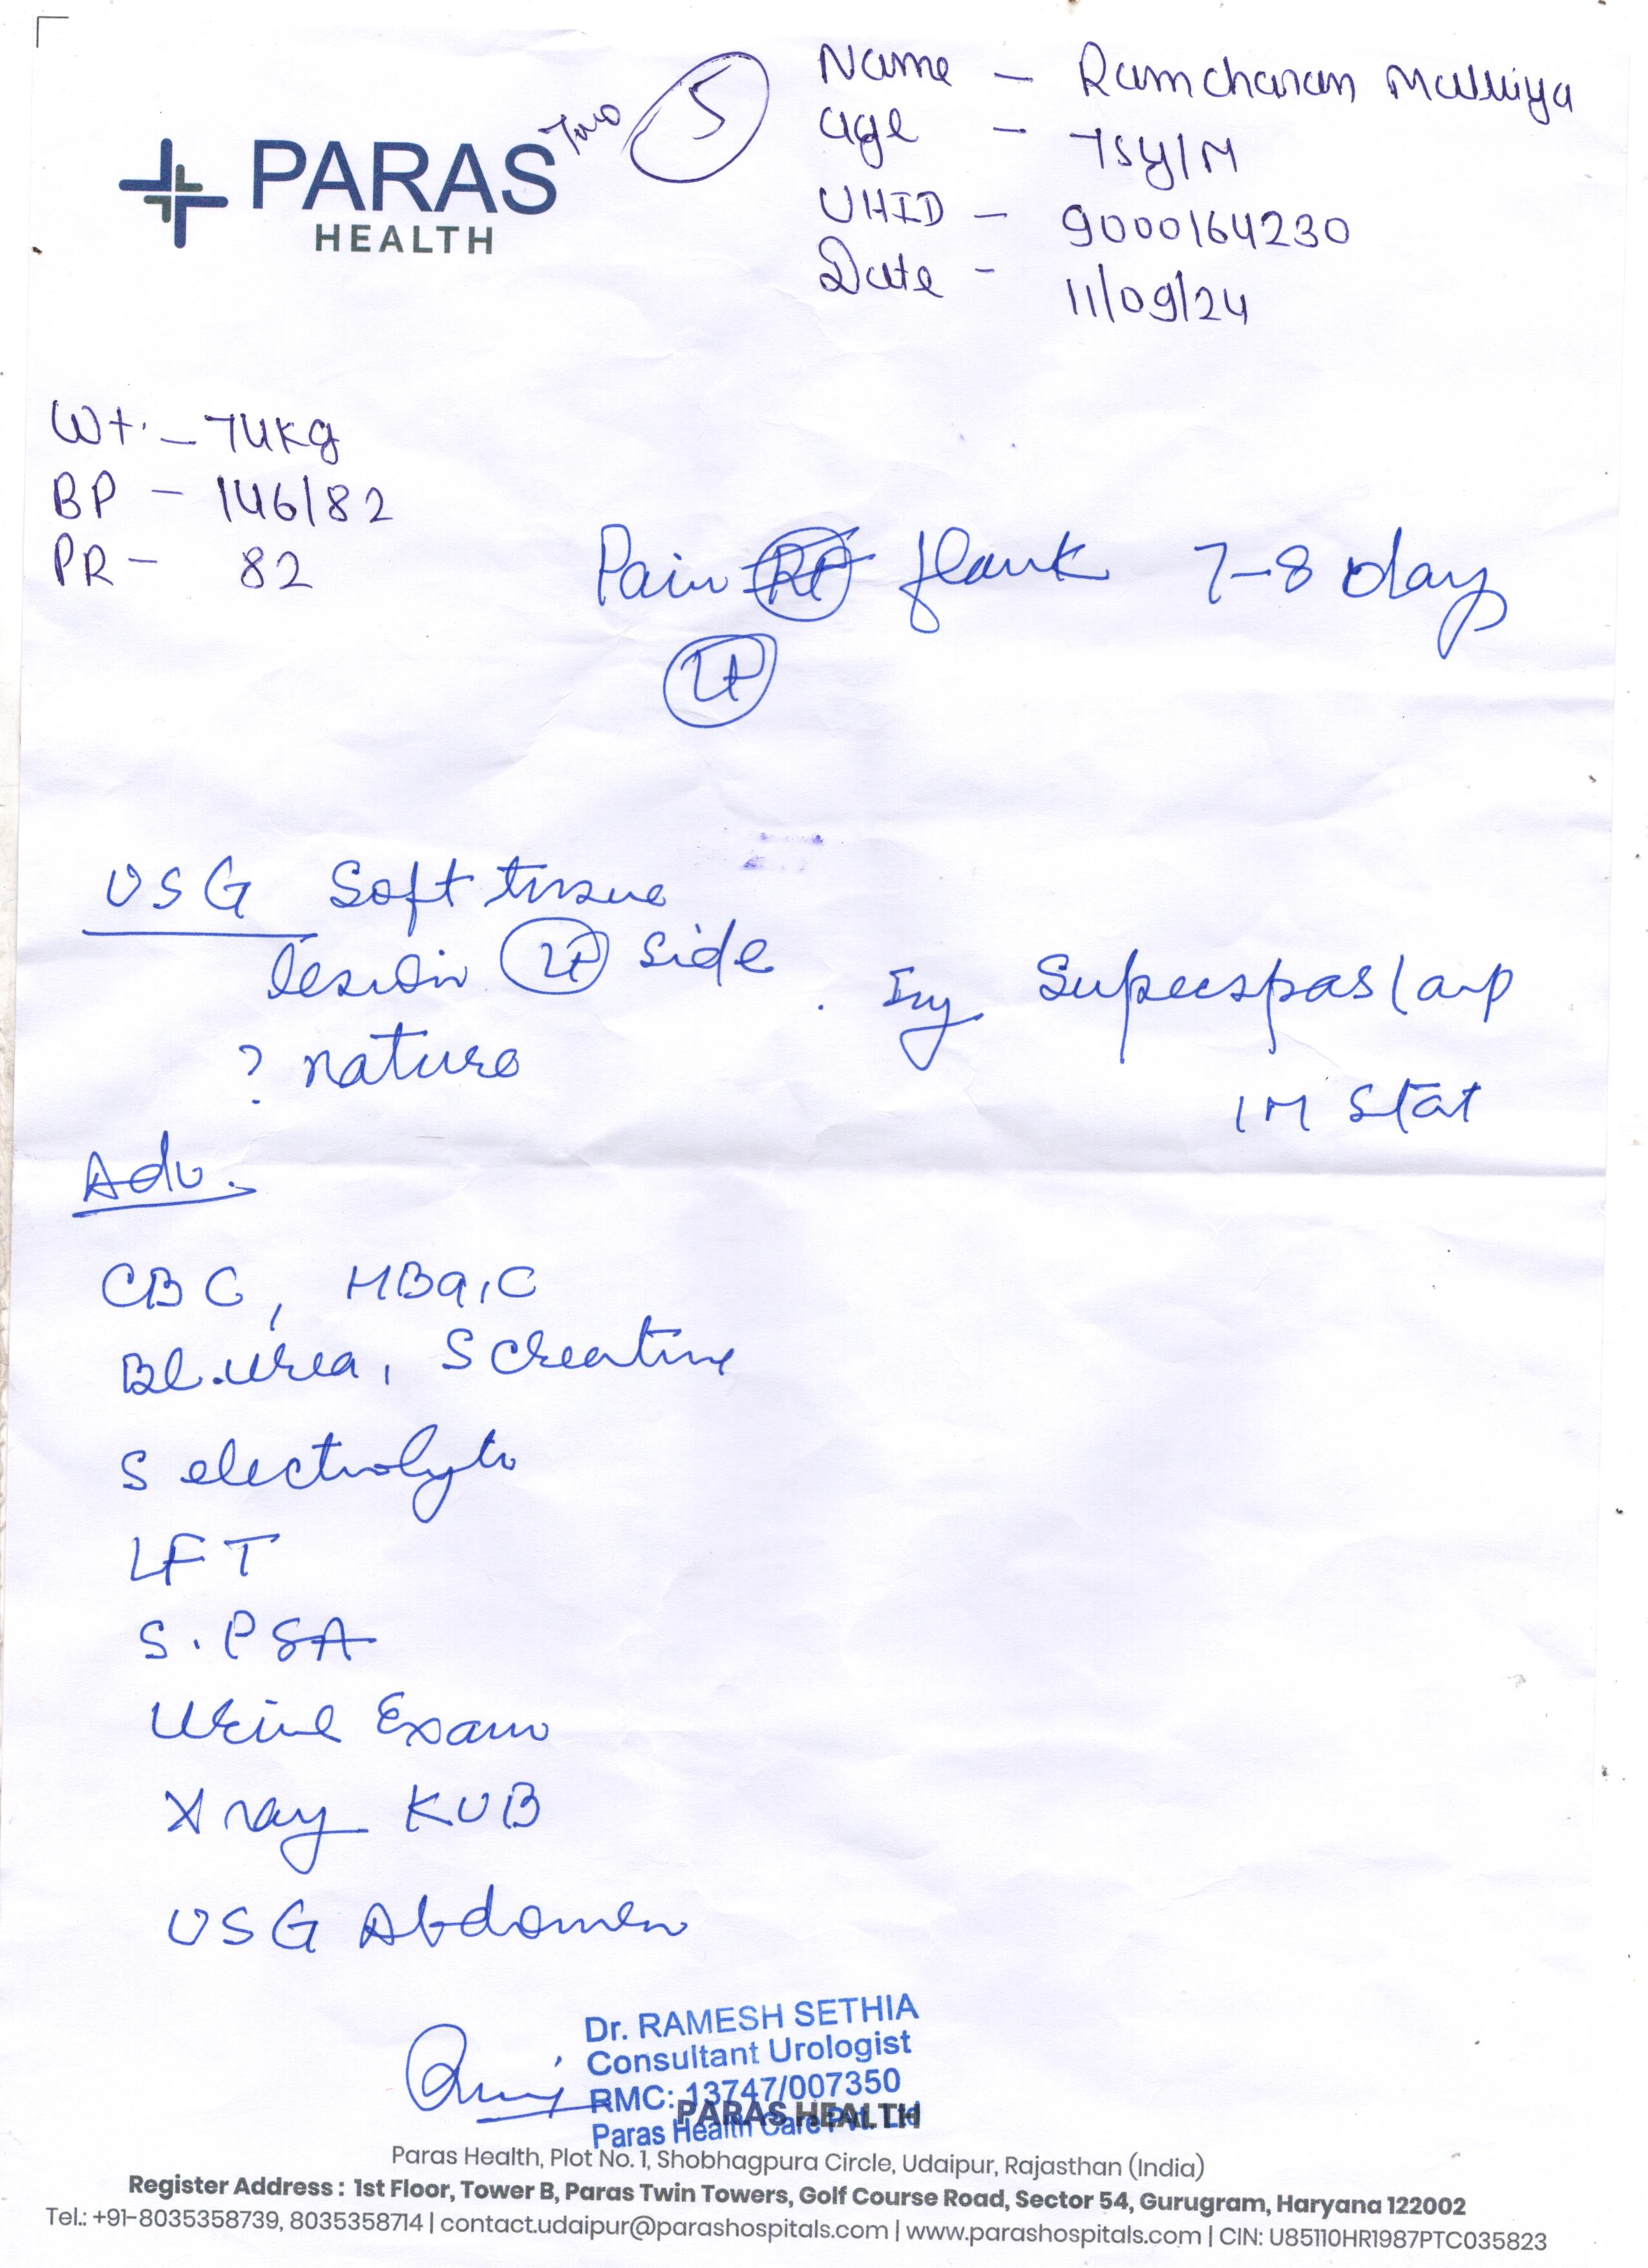 PARAS
HEALTH
5
Name - Ramcharan
age - 75y/M
UHID - 9000164230
Date - 11/09/24
Wt. - 74kg
BP - 146/82
PR - 82
Pain Rt flank 7-8 day
Lt
USG Soft tissue
lesion Lt side
? nature
Inj Superspas 1 amp
IM Stat
Adv.
CBC, HBA1C
Bl. urea, S Creatine
S electrolyte
LFT
S. PSA
Urine Exam
X ray KUB
USG Abdomen
Dr. RAMESH SETHIA
Consultant Urologist
RMC: 13747/007350
Paras Health Care Pvt. Ltd
PARAS HEALTH
Paras Health, Plot No. 1, Shobhagpura Circle, Udaipur, Rajasthan (India)
Register Address : 1st Floor, Tower B, Paras Twin Towers, Golf Course Road, Sector 54, Gurugram, Haryana 122002
Tel.: +91-8035358739, 8035358714 | contact.udaipur@parashospitals.com | www.parashospitals.com | CIN: U85110HR1987PTC035823